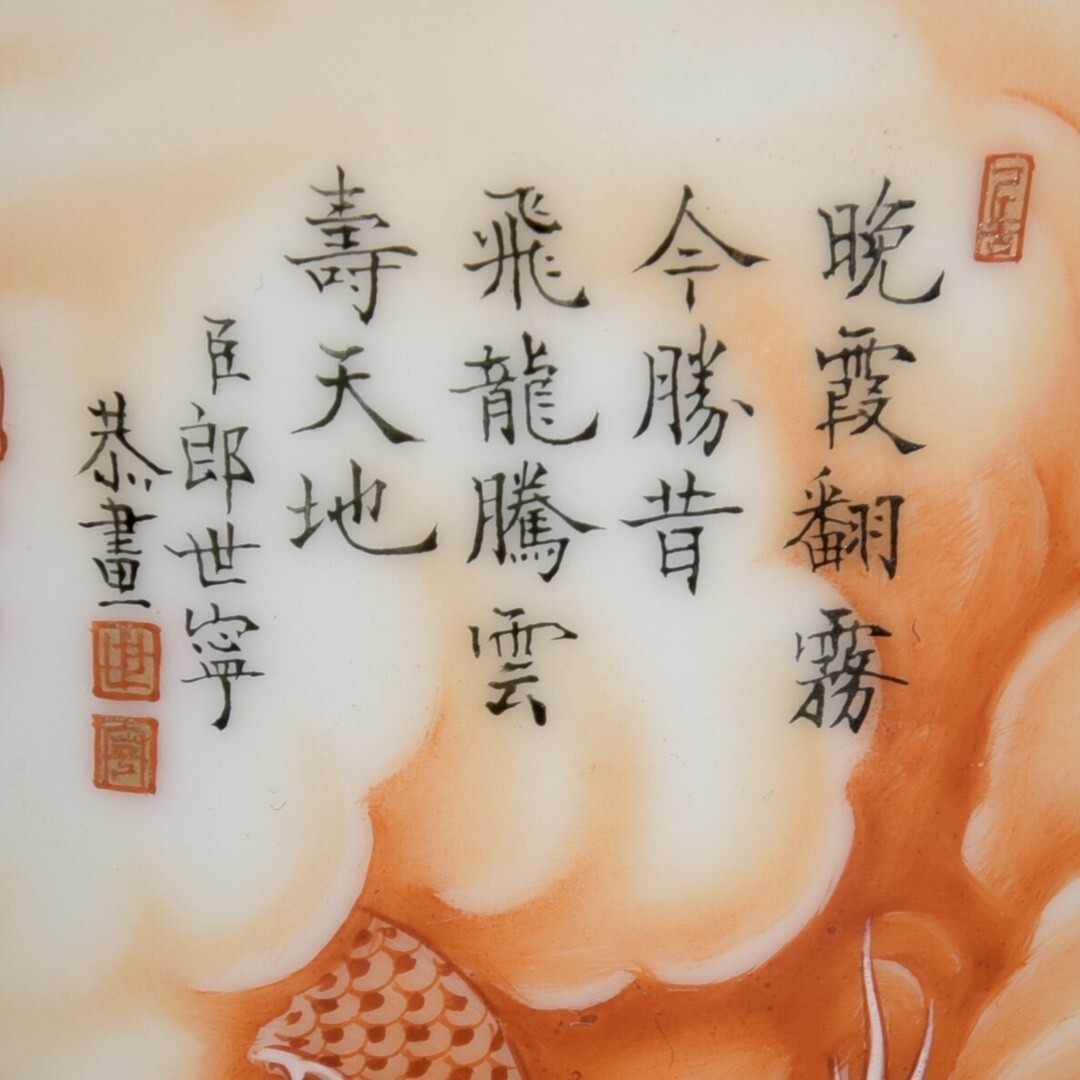 晚霞翻霧
今勝昔
飛龍騰雲
壽天地
臣郎世寧
恭畫
世
寧